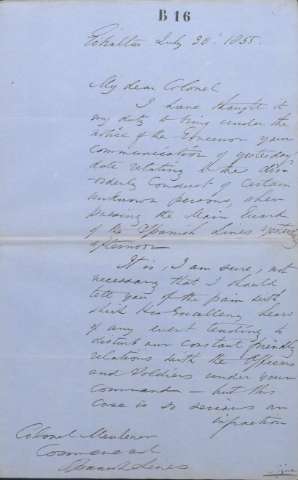 B 16
Gibraltar July 30th 1855.
My dear Colonel
I have thought it
my duty to bring under the
notice of the Governor your
communication of yesterday's
date relating to the dis-
orderly conduct of certain
unknown persons, when
passing the Main Guard
of the Spanish Lines yesterday
afternoon
It is, I am sure, not
necessary that I should
tell you of the pain with
which His Excellency hears
of any event tending to
disturb our constant friendly
relations with the Officers
and Soldiers under your
command — but this
case is so serious an
infraction
Colonel
Command
Spanish Lines